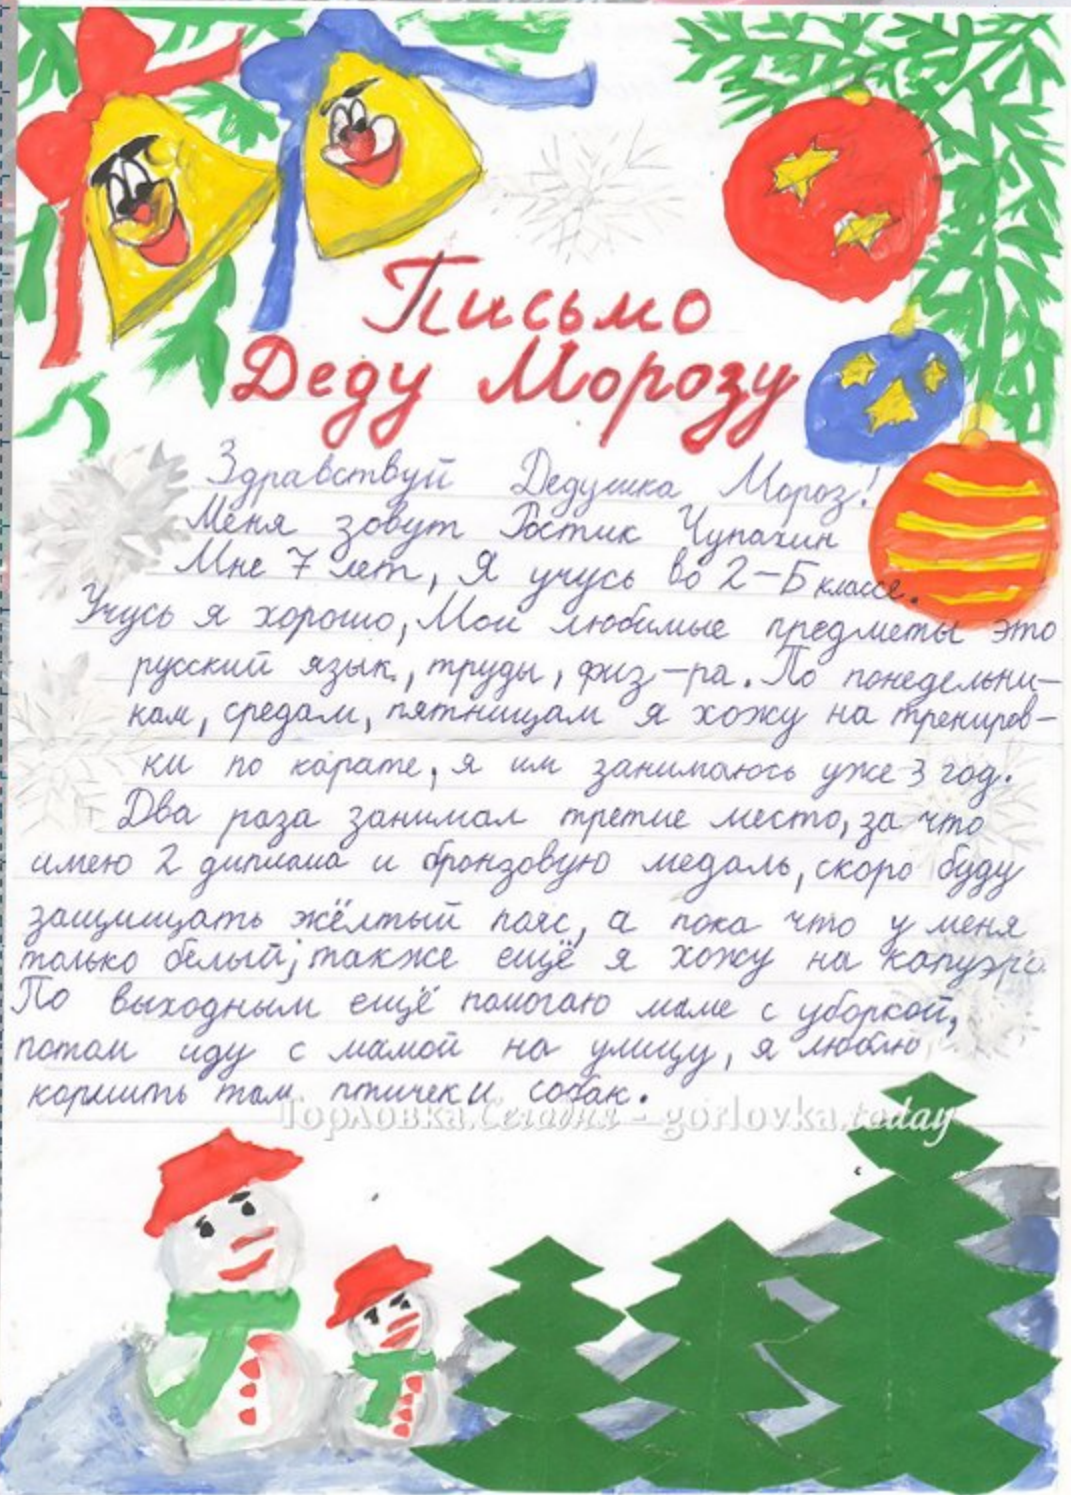 Письмо
Деду Морозу
Здравствуй Дедушка Мороз!
Меня зовут Ростик Чупахин
Мне 7 лет, Я учусь во 2-Б классе.
Учусь я хорошо, Мои любимые предметы это
русский язык, труды, физ-ра. По понедельни-
кам, средам, пятницам я хожу на трениров-
ки по карате, я им занимаюсь уже 3 год.
Два раза занимал третие место, за что
имею 2 диплома и бронзовую медаль, скоро буду
защищать жёлтый пояс, а пока что у меня
только белый; также ещё я хожу на капуэро.
По выходным ещё помогаю маме с уборкой,
потом иду с мамой на улицу, я люблю
кормить там птичек и собак.
Горловка.Сегодня - gorlovka.today